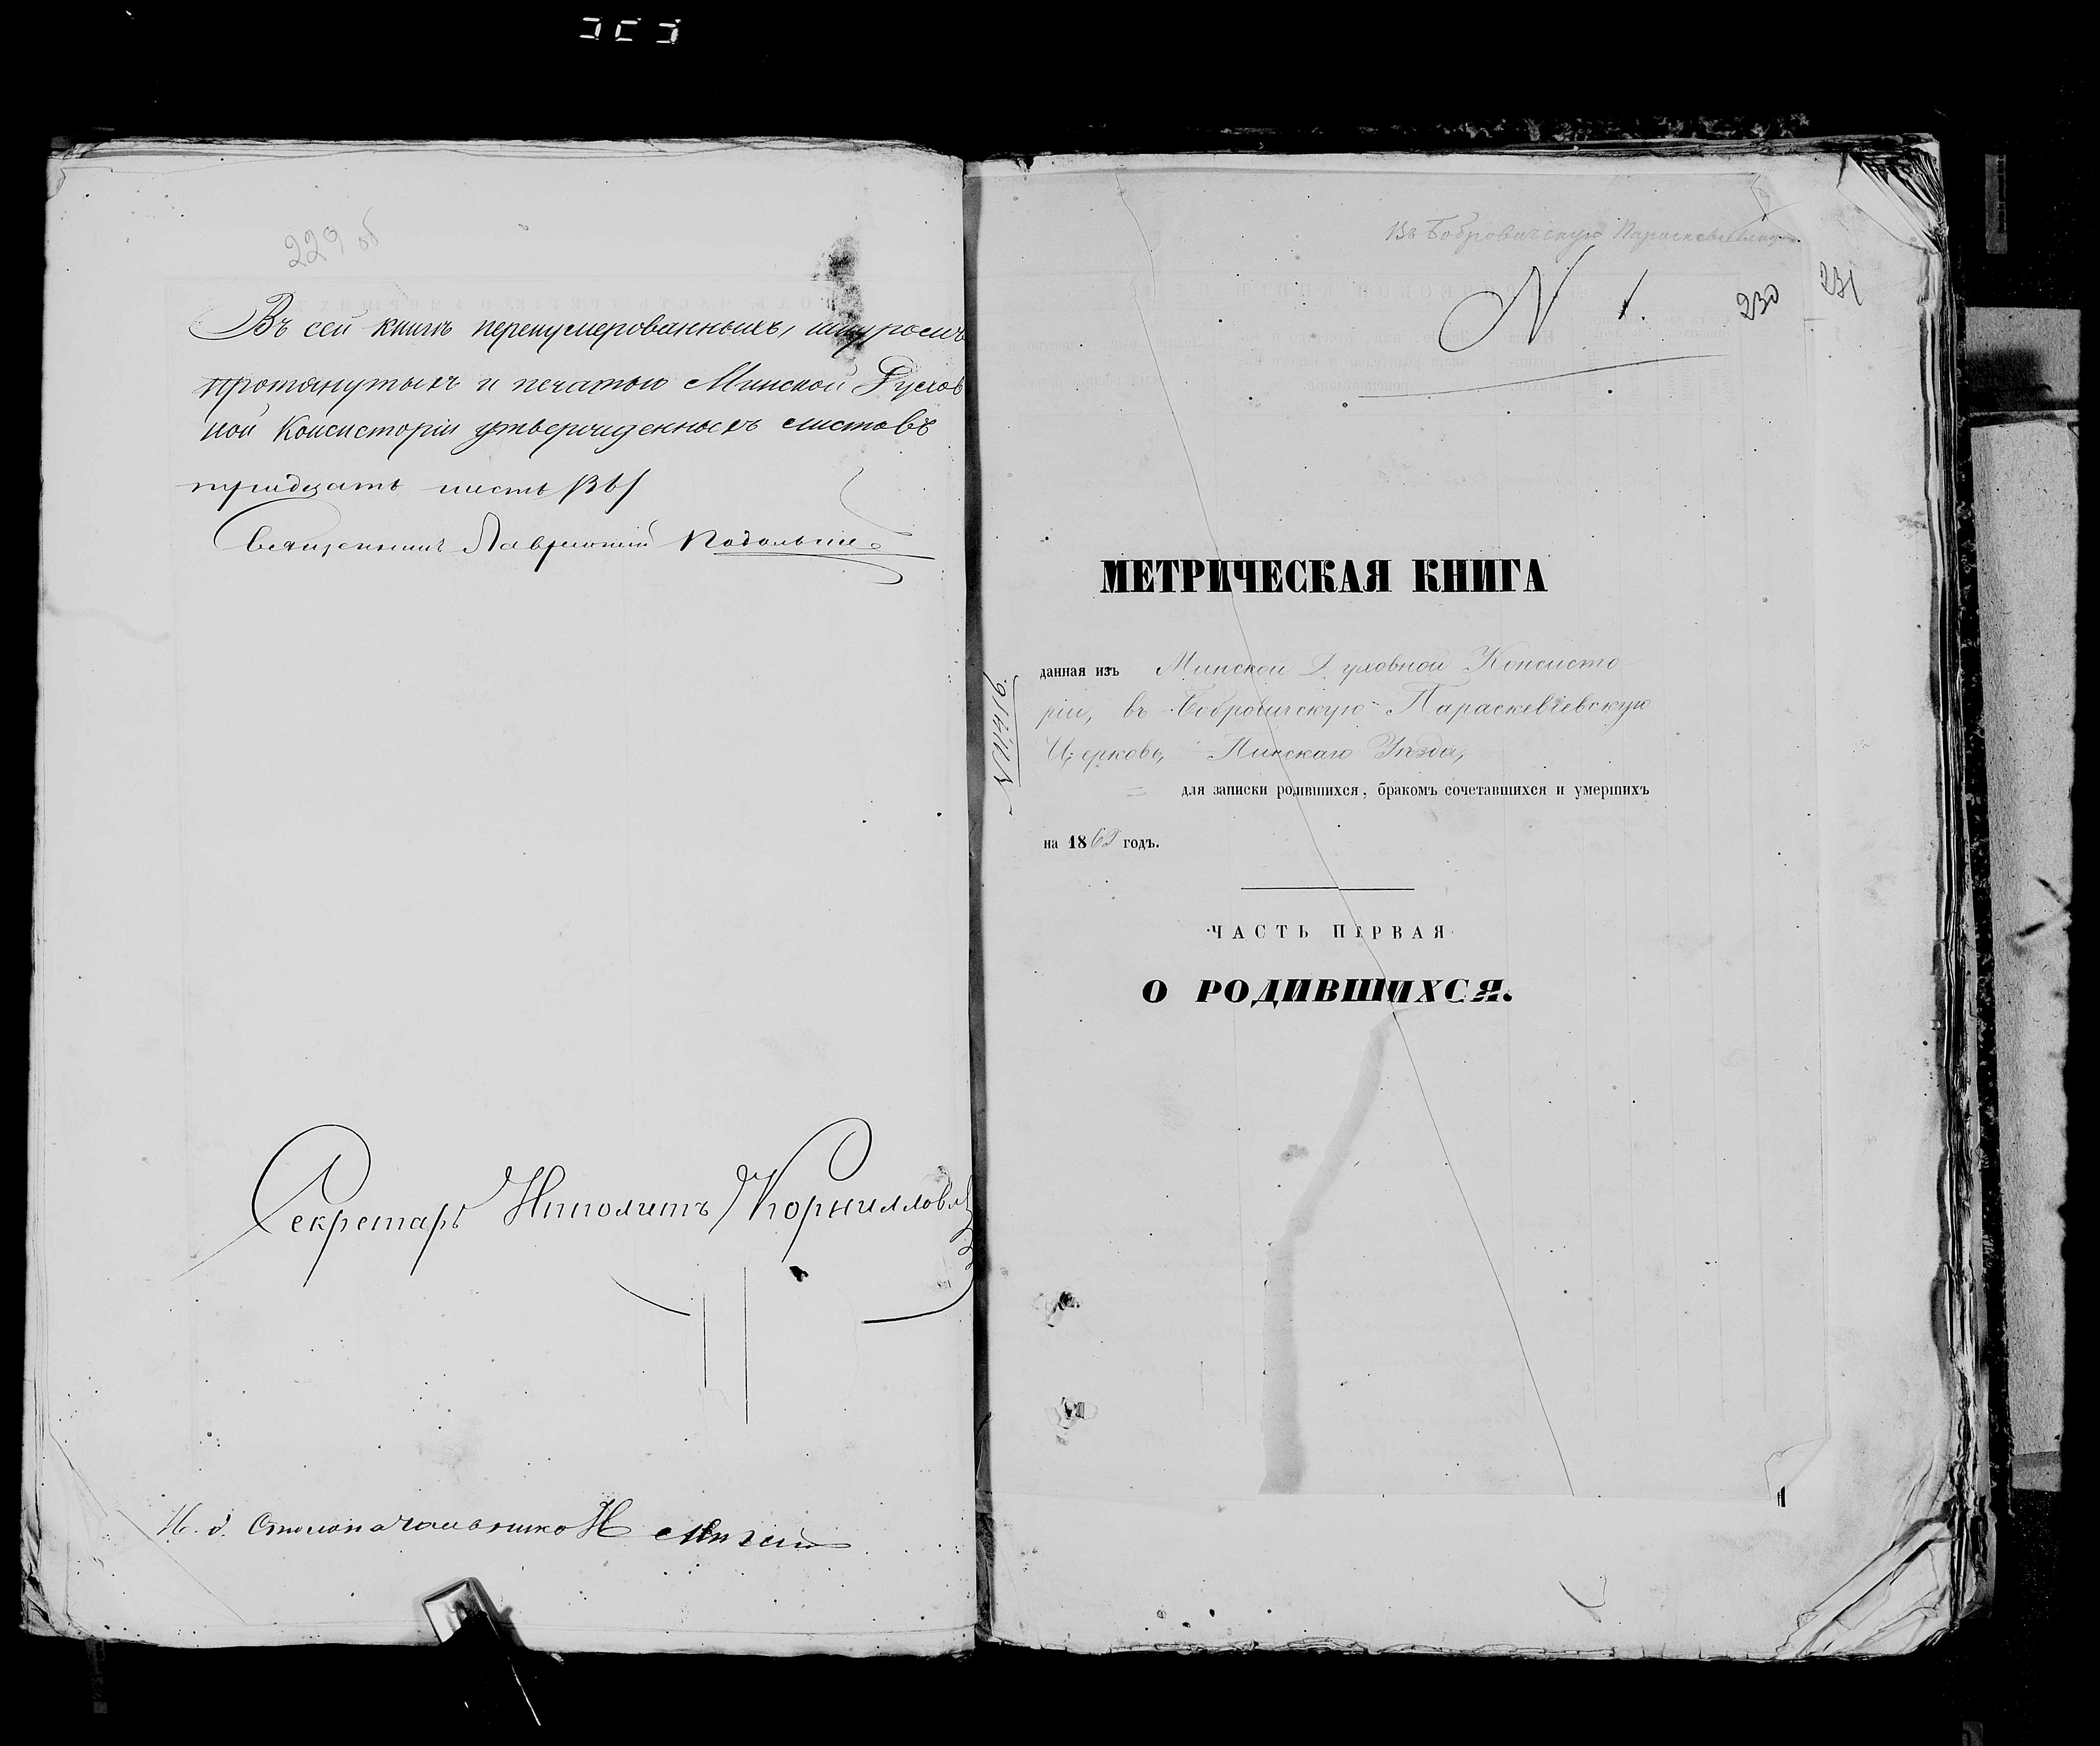 229 об
Въ сей книгѣ перенумерованныхъ, шнуромъ
протянутыхъ и печатью Минской Духов
ной Консисторіи утвержденныхъ листовъ
тридцать шесть /36/
Священникъ Лаврентій
Секретарь Ипполитъ Корнилловъ
И. д. Столоначальника Н
Въ Бобровичскую Параскевіевскую
N 1.
230
231
МЕТРИЧЕСКАЯ КНИГА
данная изъ Минской Духовной Консисто
ріи, въ Бобровичскую Параскевіевскую
Церковь, Пинскаго Уѣзда,
для записки родившихся, бракомъ сочетавшихся и умершихъ
на 186 годъ.
ЧАСТЬ ПЕРВАЯ
О РОДИВШИХСЯ.